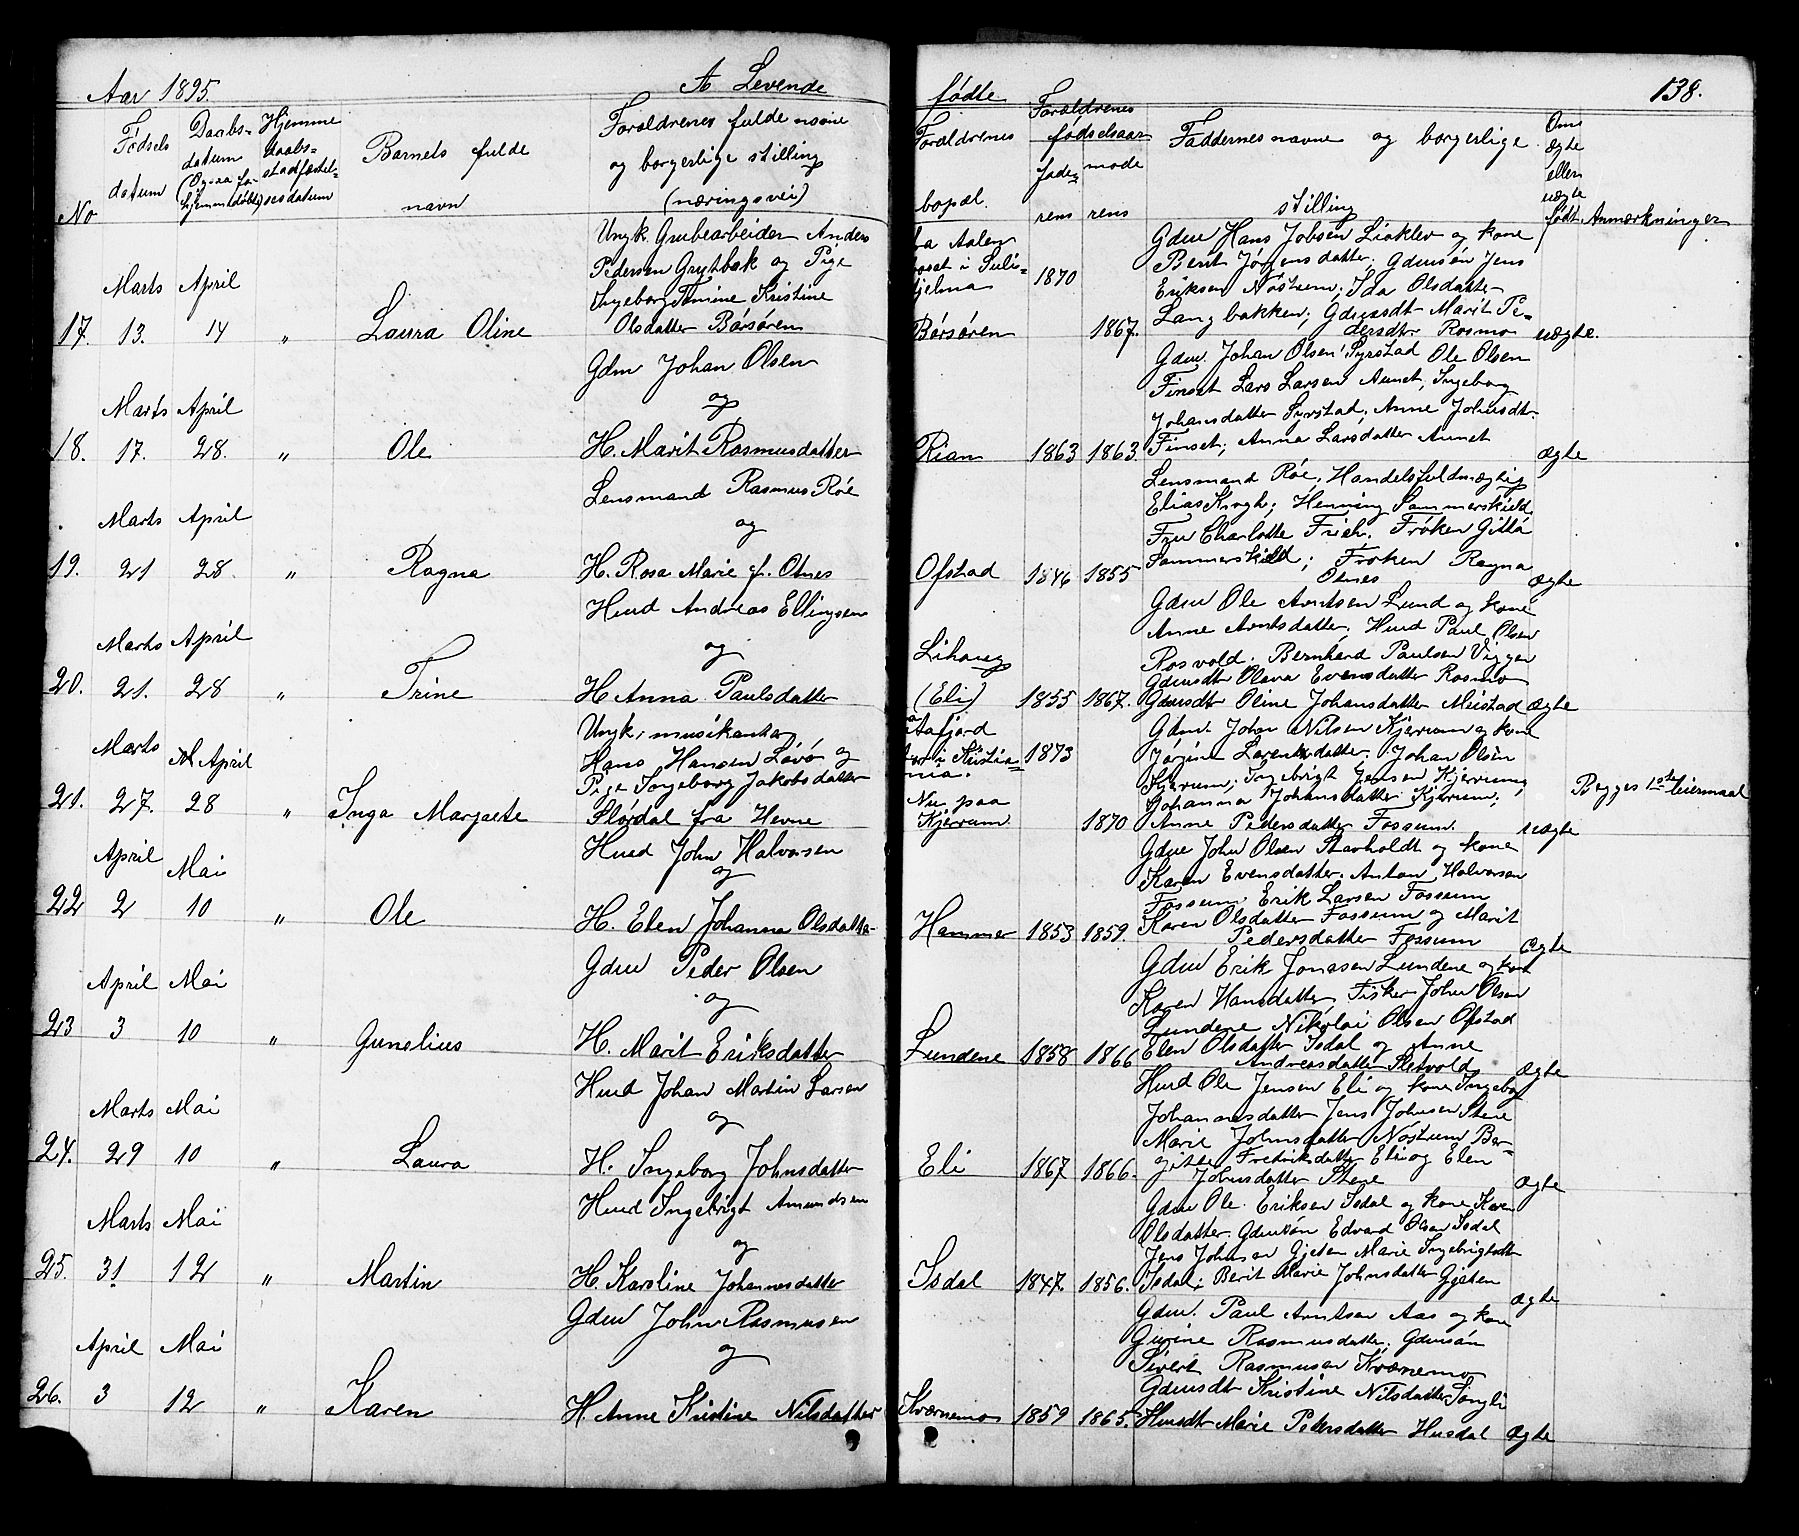 Aar 1895.
A Levende
fødte
138.
No
Fødsels datum
Daabs-datum (Ogsaa for hjemmedøbte)
Hjemmedaabs-stadfæstelsesdatum
Barnets fulde navn
Forældrenes fulde navne og borgerlige stilling (næringsvei)
Forældrenes bopæl.
Forældrenes fødselsaar
faderens
moderens
Faddernes navne og borgerlige stilling
Om ægte eller uægte født
Anmærkninger
17. Marts 13. April 14 " Laura Oline
Ungk. Grubearbeider Anders
Pedersen Grytbak og Pige
Ingeborg Tomine Kristine
Olsdatter Børsøren
fra Aalen
bosat i Suli=
tjelma 1870
Børsøren 1867.
Gdm Hans Jobsen Liaklev og kone
Berit Jørgensdatter; Gdmsøn Jens
Eriksen Nostrum; Ida Olsdatter
Langbakken; Gdmsdt Marit Pe-
dersdtr Rosmo
uægte.
18. Marts 17. April 28. " Ole
Gdm Johan Olsen
og
H. Marit Rasmusdatter
Rian 1863 1863.
Gdm. Johan Olsen Syrstad Ole Olsen
Finset Lars Larsen Aunet, Ingeborg
Johansdatter Syrstad; Anne Johnsdt.
Finset; Anna Larsdatter Aunet
ægte
19. Marts 21 April 28. " Ragna
Lensmand Rasmus Røe
og
H. Rosa Marie f. Otnes
Ofstad 1846 1855
Lensmand Røe, Handelsfuldmægtig
Elias Krogh; Henning Sommerskield
Fru Charlotte Frich. Frøken Gitta
Sommerskield; Frøken Ragna
Otnes
ægte
20. Marts 21. April 28 " Trine
Husd Andreas Ellingsen
og
H Anna Paulsdatter
Lihaug
(Eli) 1855 1867.
Gdm Ole Arntsen Lund og kone
Anne Arntsdatter, Husd Paul Olsen
Rosvold. Bernhard Paulsen Viggen
Gdmsdtr Olava Evensdatter Rosmo
Gdmsdtr Oline Johansdatter Mustad
ægte
21. Marts 27. April 28 " Inga Margrete
Ungk, musikantery
Hans Hansen Løvø og
Pige Ingeborg Jakobsdatter
Slørdal fra Hevne
Aafjord
nu i Kristia=
nia. 1873
Nu paa
Kjerrum 1870
Gdm. Johan Nilsen Kjerrum og kone
Jørgine Larentsdatter; Johan Olsen
Kjerrum; Ingebrigt Jensen Kjerrum;
Johanna Johansdatter Kjerrum;
Anne Pedersdatter Fossum.
uægte
Begges 1ste leiermaal
22 April 2 Mai 10 " Ole
Husd John Halvorsen
og
H. Elen Johanna Olsdatter
Hammer 1853 1859.
Gdm John Olsen Stavholdt og kone
Karen Evensdatter. Anton Halvorsen
Fossum. Erik Larsen Fossum
Karen Olsdatter Fossum og Marit
Pedersdatter Fossum
ægte
23 April 3 Mai 10 " Gunelius
Gdm Peder Olsen
og
H. Marit Eriksdatter
Lundene 1858 1866
Gdm Erik Jonasen Lundene og kone
Karen Hansdatter, Fisker John Olsen
Lundene Nikolai Olsen Ofstad
Elen Olsdatter Isdal og Anne
Andreasdatter Sletvold
ægte
24. Marts 29 Mai 10 " Laura
Husd Johan Martin Larsen
og
H. Ingeborg Johnsdatter
Eli 1867 1866.
Husd Ole Jensen Eli og kone Ingeborg
Johannesdatter Jens Johnsen Stene
Marie Johnsdatter Nostrum Ber-
gitte Fredriksdatter Eli og Elen
Johnsdatter Stene
ægte
25. Marts 31 Mai 12 " Martin
Husd Ingebrigt Amundsen
og
H. Karoline Johannesdatter
Isdal 1847. 1856.
Gdm Ole Eriksen Isdal og kone Karen
Olsdatter. Gdmsøn Edvard Olsen Isdal
Jens Johnsen Gjeten Marie Ingebrigtsdt
Isdal; Berit Marie Johnsdatter Gjeten
ægte
26. April 3 Mai 12 " Karen
Gdm John Rasmusen
og
H Anne Kristine Nilsdatter
Kværnemo 1859 1865.
Gdm. Paul Arntsen Aas og kone
Gurine Rasmusdatter; Gdmsøn
Sivert Rasmusen Kværnemo
Gdmsdt Kristine Nilsdatter Songli
Husdt Marie Pedersdatter Husdal
ægte